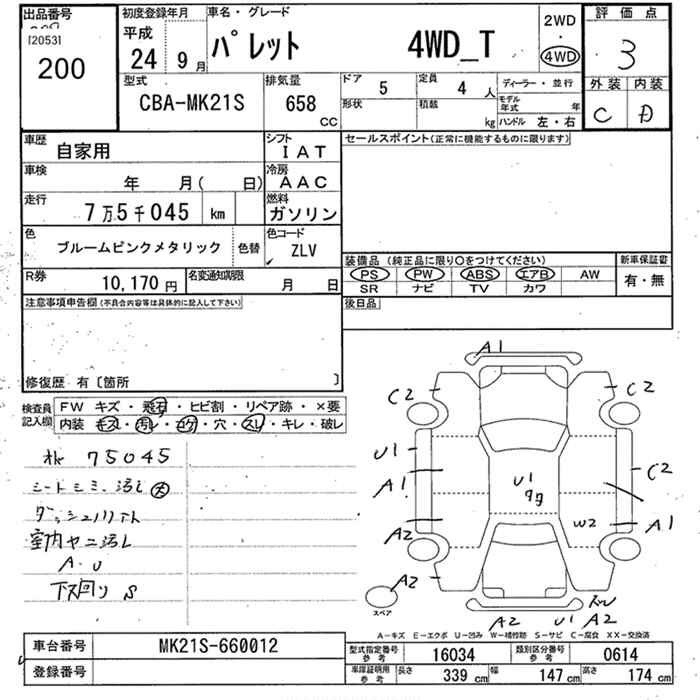 出品番号
[2053]
200
初度登録年月
平成
24 9月
車名・グレード
パレット 4WD_T
2WD
・
4WD
評価点
3
外装 内装
C D
型式
CBA-MK21S
排気量
658
CC
ドア 5
定員 4 人
形状
積載 kg
ディーラー・並行
モデル年式 年
ハンドル 左・右
車歴
自家用
シフト
IAT
車検
年 月( 日)
冷房
AAC
走行
7万5千045 km
燃料
ガソリン
色
ブルームピンクメタリック
色替
色コード
ZLV
R券
10,170円
名変通知期限
月 日
セールスポイント(正常に機能するものに限ります)
装備品 (純正品に限り○をつけてください)
PS PW ABS エアB AW
SR ナビ TV カワ
新車保証書
有・無
後日品
注意事項申告欄(不具合内容等は具体的に記入して下さい)
修復歴 有〔箇所 〕
検査員
記入欄
FW キズ・飛石・ヒビ割・リペア跡・×要
内装 キズ・汚レ・コゲ・穴・スレ・キレ・破レ
75045
シートシミ汚レ大
室内ヤニ汚レ
A・U
下廻りS
A1
C2
C2
U1
A1
C2
U1
W2
A1
A2
A2
スペア
A2
U1
A2
A-キズ E-エクボ U-凹み W-補修跡 S-サビ C-腐食 XX-交換済
車台番号
MK21S-660012
登録番号
型式指定番号
参考
16034
類別区分番号
参考
0614
車庫証明用
参考
長さ 339 cm
幅 147 cm
高さ 174 cm